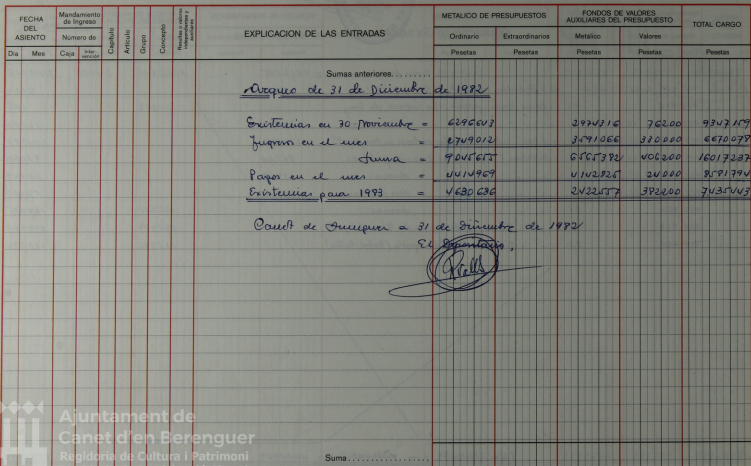 FECHA DEL ASIENTO
Día Mes
Mandamiento de Ingreso
Número de
Caja Inter-vención
Capítulo
Artículo
Grupo
Concepto
Resultas o valores independientes y auxiliares
EXPLICACION DE LAS ENTRADAS
METALICO DE PRESUPUESTOS
Ordinario Extraordinarios
Pesetas Pesetas
FONDOS DE VALORES AUXILIARES DEL PRESUPUESTO
Metálico Valores
Pesetas Pesetas
TOTAL CARGO
Pesetas
Sumas anteriores.........
Arqueo de 31 de Diciembre de 1982
Existencias en 30 Noviembre = 6296643 2974316 76200 9347159
Ingresos en el mes = 2749012 3591066 330000 6670078
Suma = 9045655 6565382 406200 16017237
Pagos en el mes = 4414969 4142825 24000 8581794
Existencias para 1983 = 4630686 2422557 382200 7435443
Canet de Berenguer a 31 de Diciembre de 1982
El Depositario,
Ajuntament de
Canet d'en Berenguer
Regidoria de Cultura i Patrimoni
Suma..................